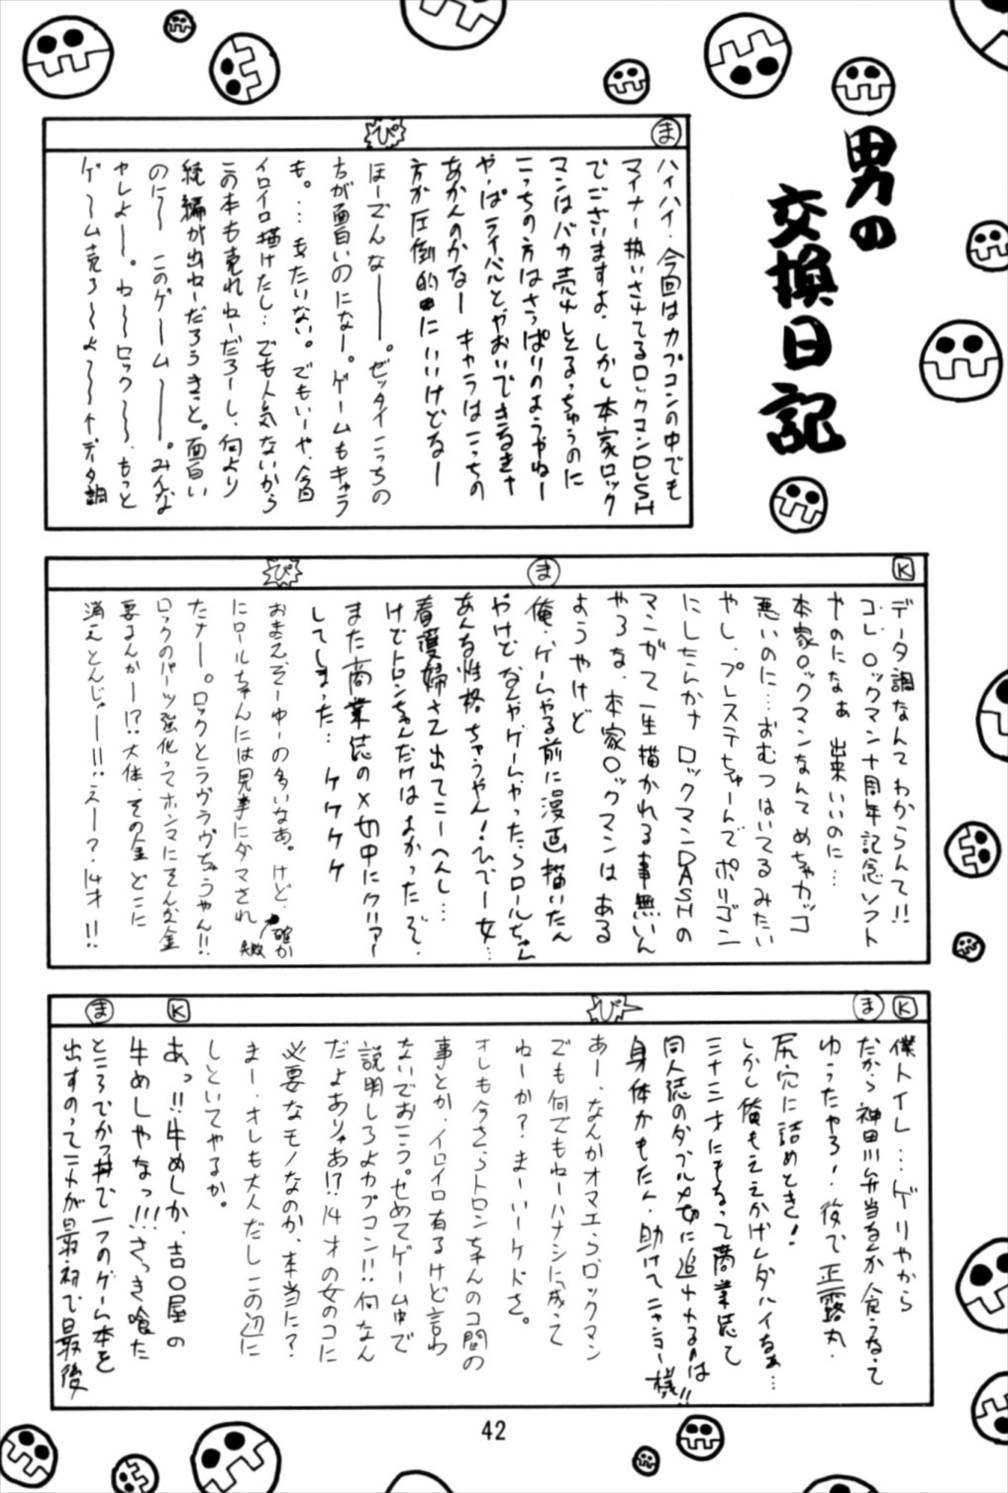 男の
交換日記
ま
ハイハイ、今回はカプコンの中でも
マイナー扱いされてるロックマンDASH
でございますよ。しかし本家ロック
マンはバカ売れしとるっちゅうのに
こっちの方はさっぱりのようやねー
やっぱライバルとやおいできなきゃ
あかんのかなー キャラはこっちの
方が圧倒的にいいけどなー
ぴ
ほーでんなー。ゼッタイこっちの
ちが面白いのになー。ゲームもキャラ
も。…もったいない。でもいーや、今回
イロイロ描けたし…でも人気ないから
この本も売れねーだろーし、何より
続編が出ねーだろうきっと。面白い
のにー このゲームー。みんな
ヤレよー。ね〜ロック〜、もっと
ゲ〜ム売ろ〜よ〜〜 データ調
K
データ調なんてわからんて!!
ゴレ、ロックマン十周年記念ソフト
やのになぁ 出来いいのに…
本家ロックマンなんてめちゃカッコ
悪いのに…おむつはいてるみたい
やし、プレステちゅーんでポリゴン
にしたんかナ ロックマンDASHの
マンガて一生描かれる事無いん
やろな、本家ロックマンは ある
ようやけど
ま
俺、ゲームやる前に漫画描いたん
やけど なんや、ゲームやったらロールちゃん
あんな性格ちゃうやん!ひでー女…
看護婦さん出てこーへんし…
けどトロンちゃんだけはよかったぞ。
また商業誌の〆切中にクリアー
してしまった… ケケケケ
ぴ
おまえそーゆーの多いなぁ。けど、確か
にロールちゃんには見事にダマされ
たナー。ロックとラヴラヴちゃうやん!!
ロックのパーツ強化ってホンマにそんな金
要るんかー!?大体、その金どこに
消えとんじゃー!!えー?、14才!!
K
僕トイレ…ゲリやから
ま
だから神田川弁当なんか食うなって
ゆったやろ!後で正露丸、
尻の穴に詰めとき!
しかし俺もええかげんダハイなぁ…
三十三才にもなって商業誌て
同人誌のダブル〆切に追われるのは!!
身体がもたん、助けてニャンコー様!!
ぴ
あー、なんかオマエら、ロックマン
でも何でもねーハナシに成って
ねーか?まーいーケドさ。
オレも今さらトロンちゃんのコ間の
事とか、イロイロ有るけど言わ
ないでおこう。せめてゲーム中で
説明しろよカプコン!!何なん
だよありゃあ!?14才の女のコに
必要なモノなのか、本当に?
まー、オレも大人だしこの辺に
しといてやるか。
K
あっ!!牛めしか、吉〇屋の
牛めしやなっ!!!さっき喰った
ま
ところでかつ丼で一つのゲーム本を
出すのってこれが最初で最後
42